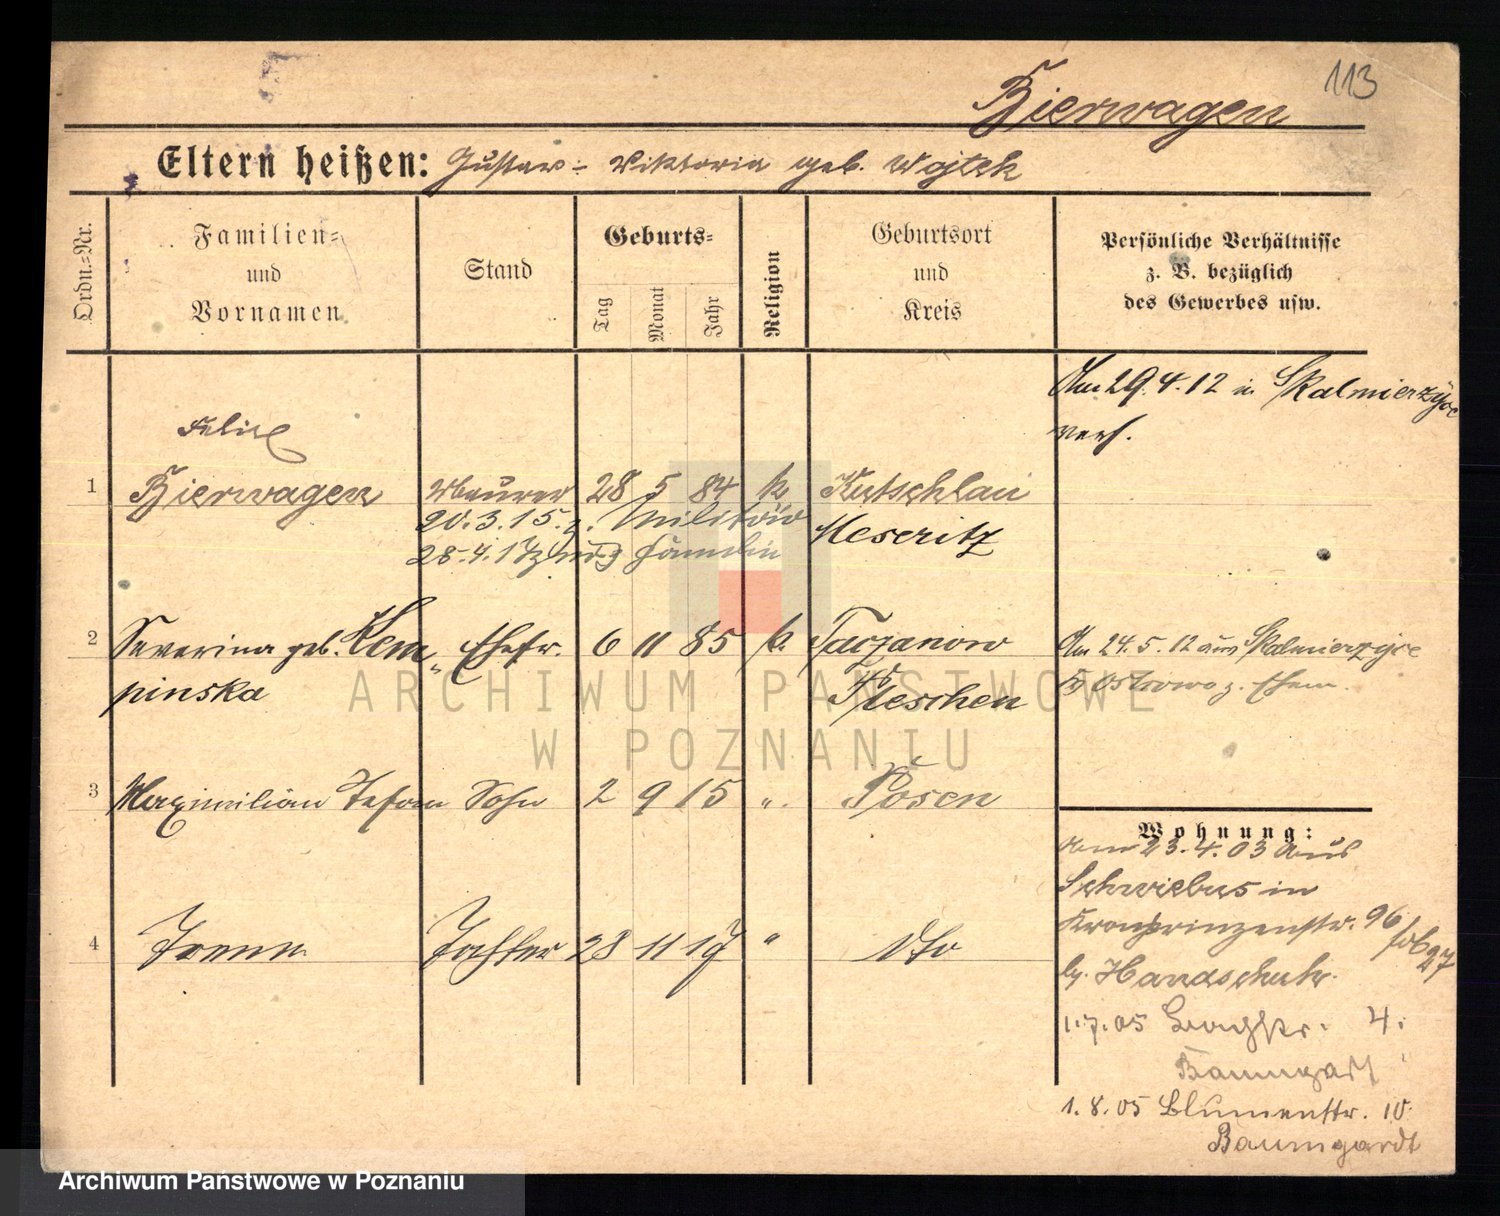 113
Bierwagen
Eltern heißen: Gustav - Viktoria geb. Wojtek
Ordn.=Nr.
Familien=
und
Vornamen
Stand
Geburts=
Tag
Monat
Jahr
Religion
Geburtsort
und
Kreis
Persönliche Verhältnisse
z. B. bezüglich
des Gewerbes usw.
Am 29.4.12 in Skalmierzyce
verh.
Felix
1 Bierwagen Maurer 28 5 84 k Kutschlau
20.3.15. z. Militär Meseritz
28.4.17 Familie
2 Severina geb. Kem- Ehefr. 6 11 85 k. Tarzanow
pinska Pleschen
Am 24.5.12 aus Skalmierzyce
Ostrowo z. Ehem.
3 Maximilian Stefan Sohn 2 9 15 ". Posen
4 Irene Tochter 28 11 17 " dto
Wohnung:
am 23.4.03 aus
Schwiebus in
Kronprinzenstr. 96
27
b. Handschuh.
1.7.05 Bachstr. 4.
Baumgart
1.8.05 Blumenstr. 10.
Baumgardt
ARCHIWUM PAŃSTWOWE
W POZNANIU
Archiwum Państwowe w Poznaniu